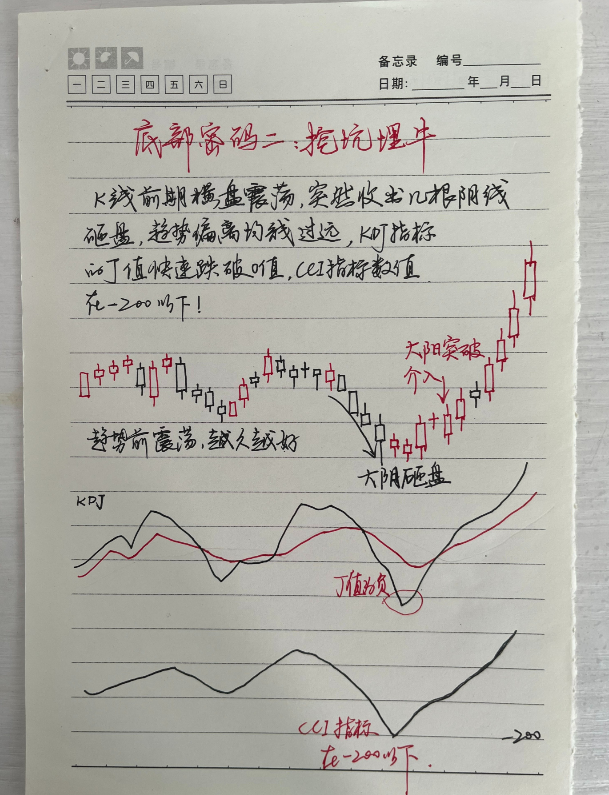 备忘录 编号
一 二 三 四 五 六 日
日期: 年 月 日
底部密码二:挖坑埋牛
K线前期横盘震荡,突然收出几根阴线
砸盘,趋势偏离均线过远,KDJ指标
的J值快速跌破0值,CCI指标数值
在-200以下!
大阳突破
介入
趋势前震荡,越久越好
大阴砸盘
KDJ
J值为负
-200
CCI指标
在-200以下.